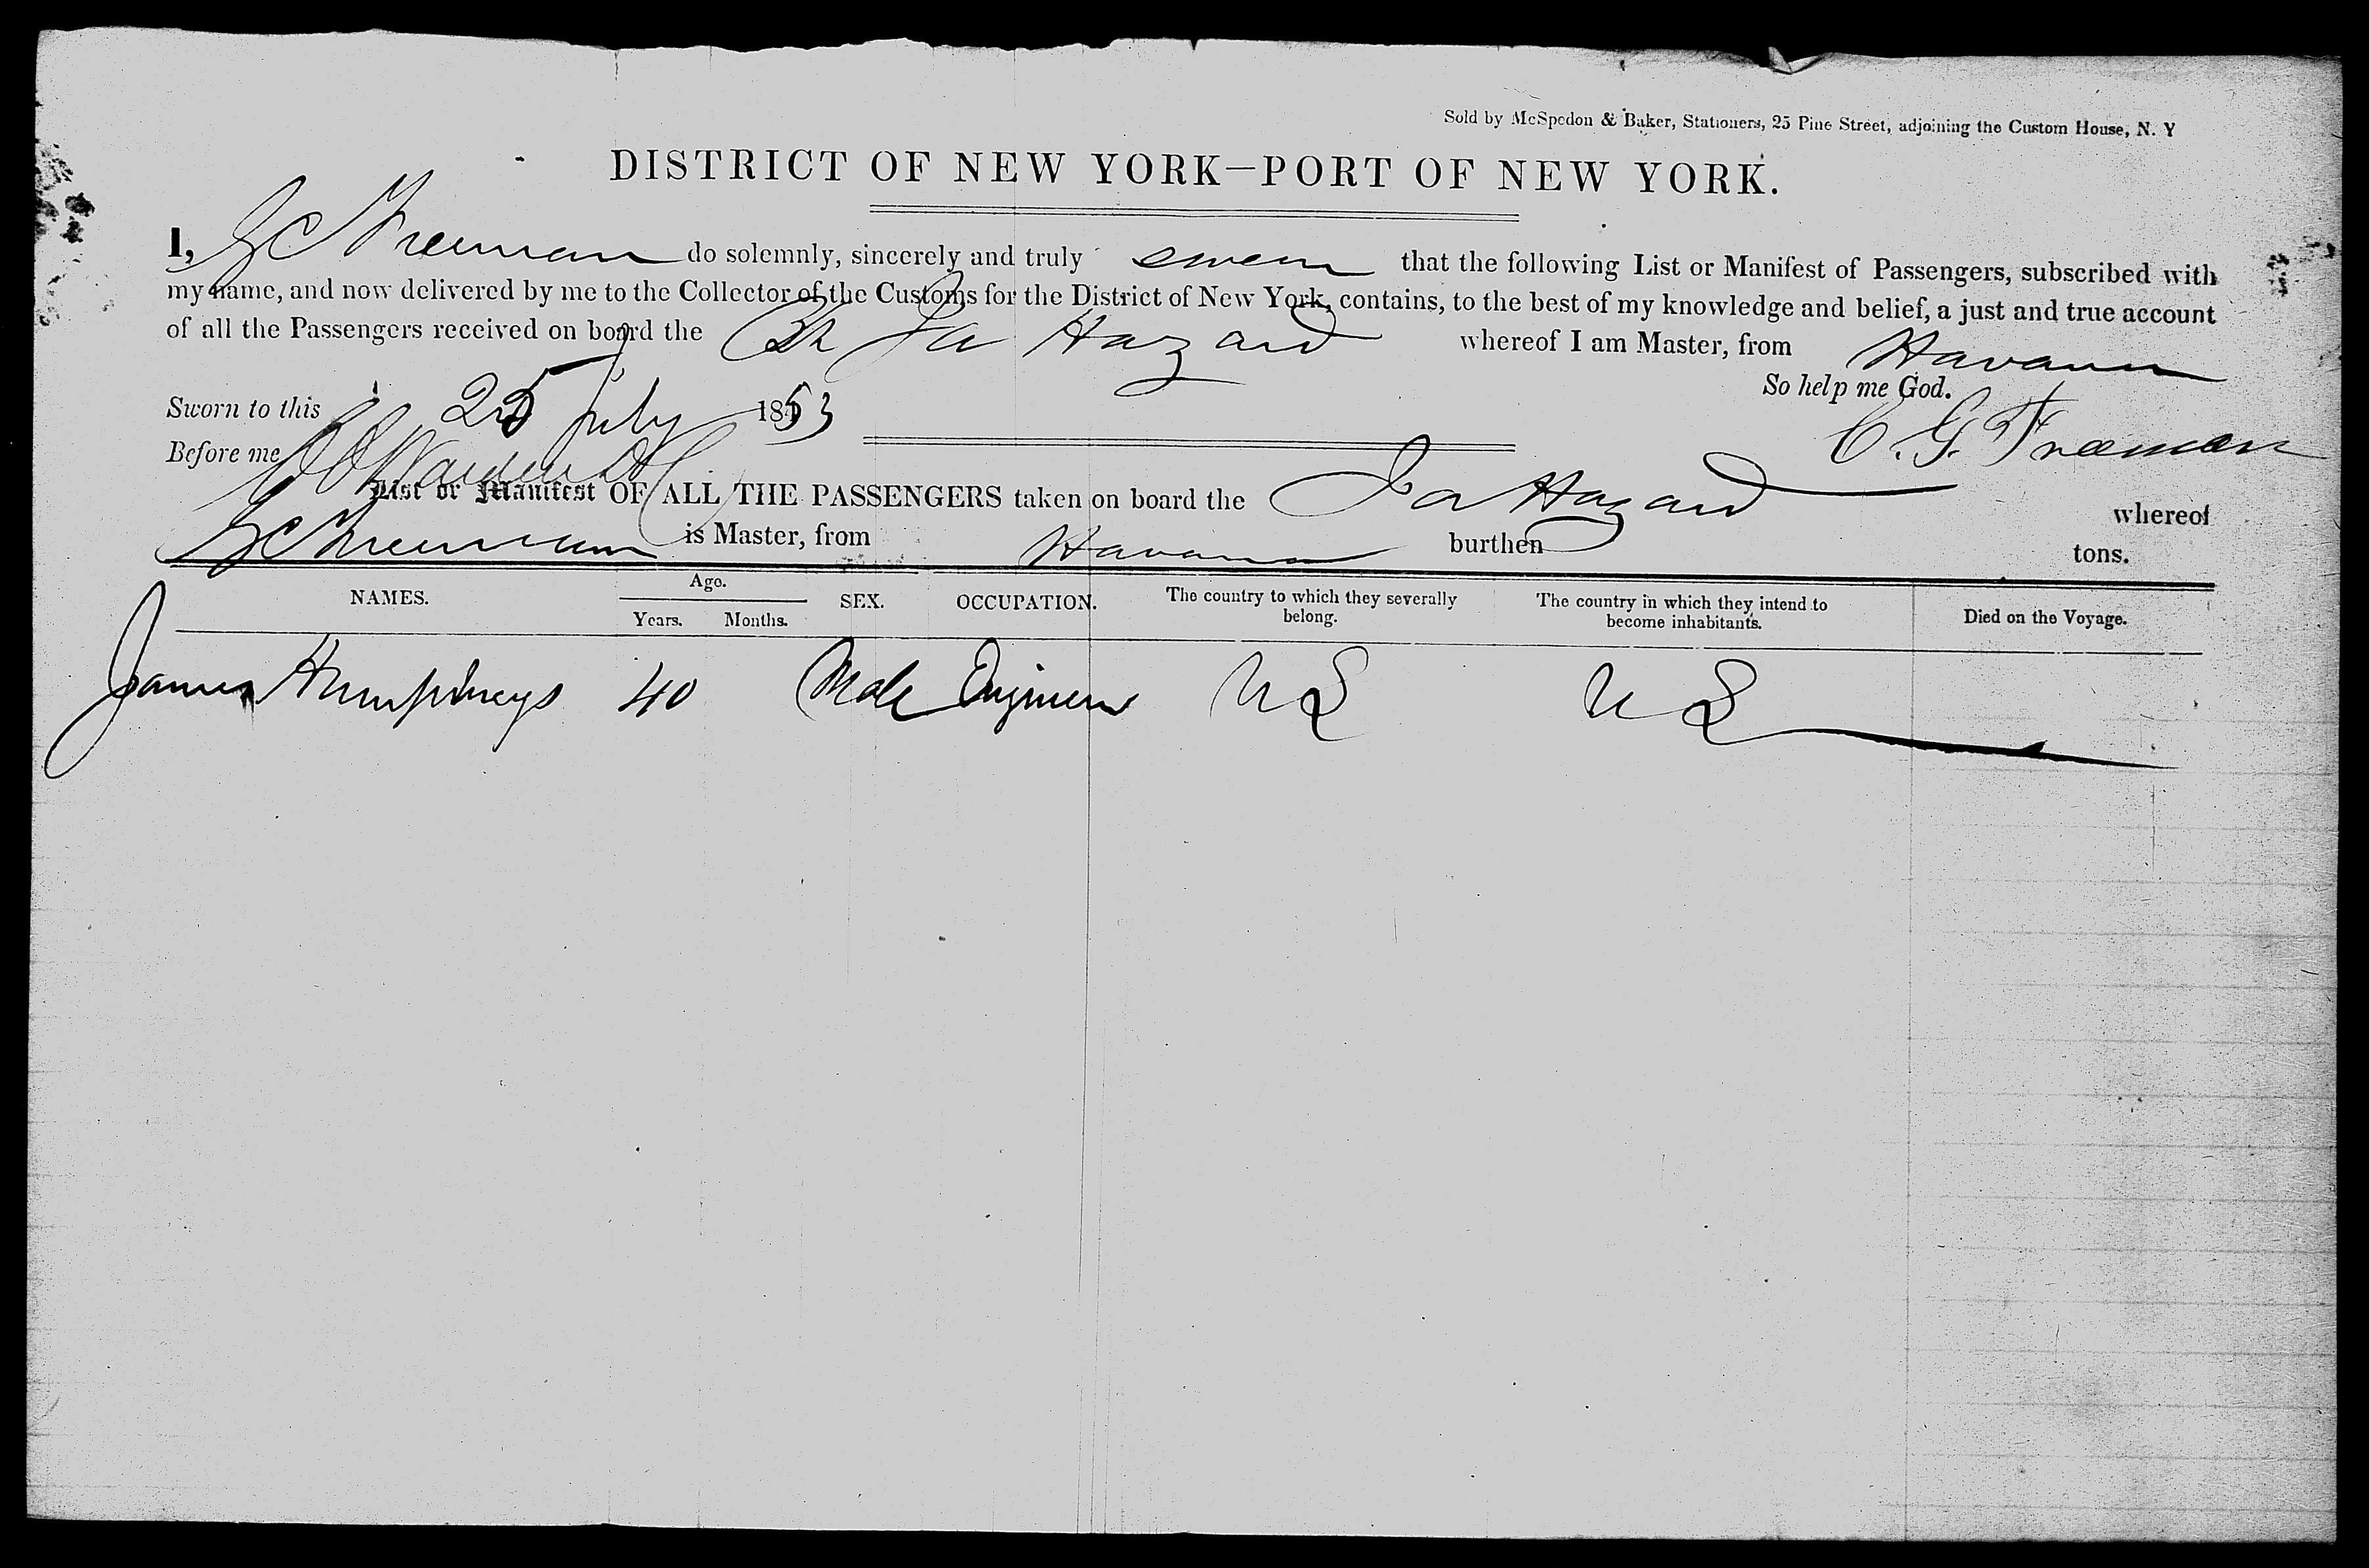 Sold by McSpedon & Baker, Stationers, 25 Pine Street, adjoining the Custom House, N. Y
DISTRICT OF NEW YORK—PORT OF NEW YORK.
I, G C Freeman do solemnly, sincerely and truly swear that the following List or Manifest of Passengers, subscribed with
my name, and now delivered by me to the Collector of the Customs for the District of New York, contains, to the best of my knowledge and belief, a just and true account
of all the Passengers received on board the Ja Hazard whereof I am Master, from Havana
So help me God.
Sworn to this 25 July 1853
C. G. Freeman
Before me
List or Manifest OF ALL THE PASSENGERS taken on board the Ja Hazard whereof
G C Freeman is Master, from Havana burthen tons.
NAMES. Age. Years. Months. SEX. OCCUPATION. The country to which they severally belong. The country in which they intend to become inhabitants. Died on the Voyage.
James Humphreys 40 Male Engineer U S U S